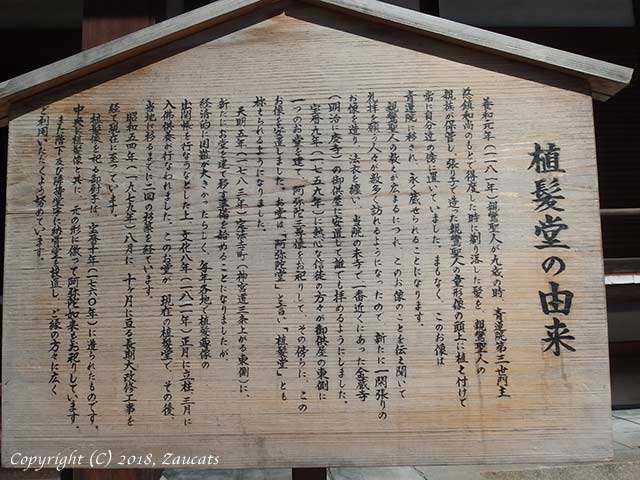 植髪堂の由来
養和元年（一一八一年）親鸞聖人が九歳の時、青蓮院第三世門主
慈鎮和尚のもとで得度した時に剃り落した髪を、親鸞聖人の
親族が保管し、張り子で造った親鸞聖人の童形像の頭上に植え付けて
常に自分達の傍に置いていました。まもなく、このお像は
青蓮院に移され、永く蔵せられることになります。
親鸞聖人の教えも広まるにつれ、このお像のことを伝え聞いて
礼拝を願う人々が数多く訪れるようになったので、新たに一間張りの
お像を造り、法衣を纏い、当院の末寺で一番近くにあった金蔵寺
（明治に廃寺）の御供屋に安置して誰でも拝めるようにしました。
宝暦九年（一七五九年）に熱心な信徒の方々が御供屋の東側に
一つのお堂を建て、阿弥陀三尊像をお祀りして、その傍らに、この
お像を安置しました。お堂は「阿弥陀堂」と言い「植髪堂」とも
称せられるようになりました。
天明五年（一七八五年）定法寺町（神宮道三条上がる東側）に、
新たにお堂を建て移す準備を始めることになりましたが、
経済的に困難が大きかったらしく、毎年各地で植髪尊像の
出開帳を行うなどした上、文化八年（一八一一年）正月に立柱、三月に
入佛供養が行なわれました。このお堂が、現在の植髪堂で、その後、
当地に移るまでに二回の移築を経ています。
昭和五四年（一九七九年）八月に、十ヶ月に亘る長期大改修工事を
経て現在に至っています。
植髪像を祀る御厨子は、宝暦十年（一七六〇年）に造られたものです。
中央に植髪像と共に、元の形に倣って阿弥陀如来をお祀りしています。
また階下及び附属堂宇に納骨堂を設置し、ご縁の方々に広く
ご利用いただくよう努めています。
Copyright (C) 2018, Zaucats